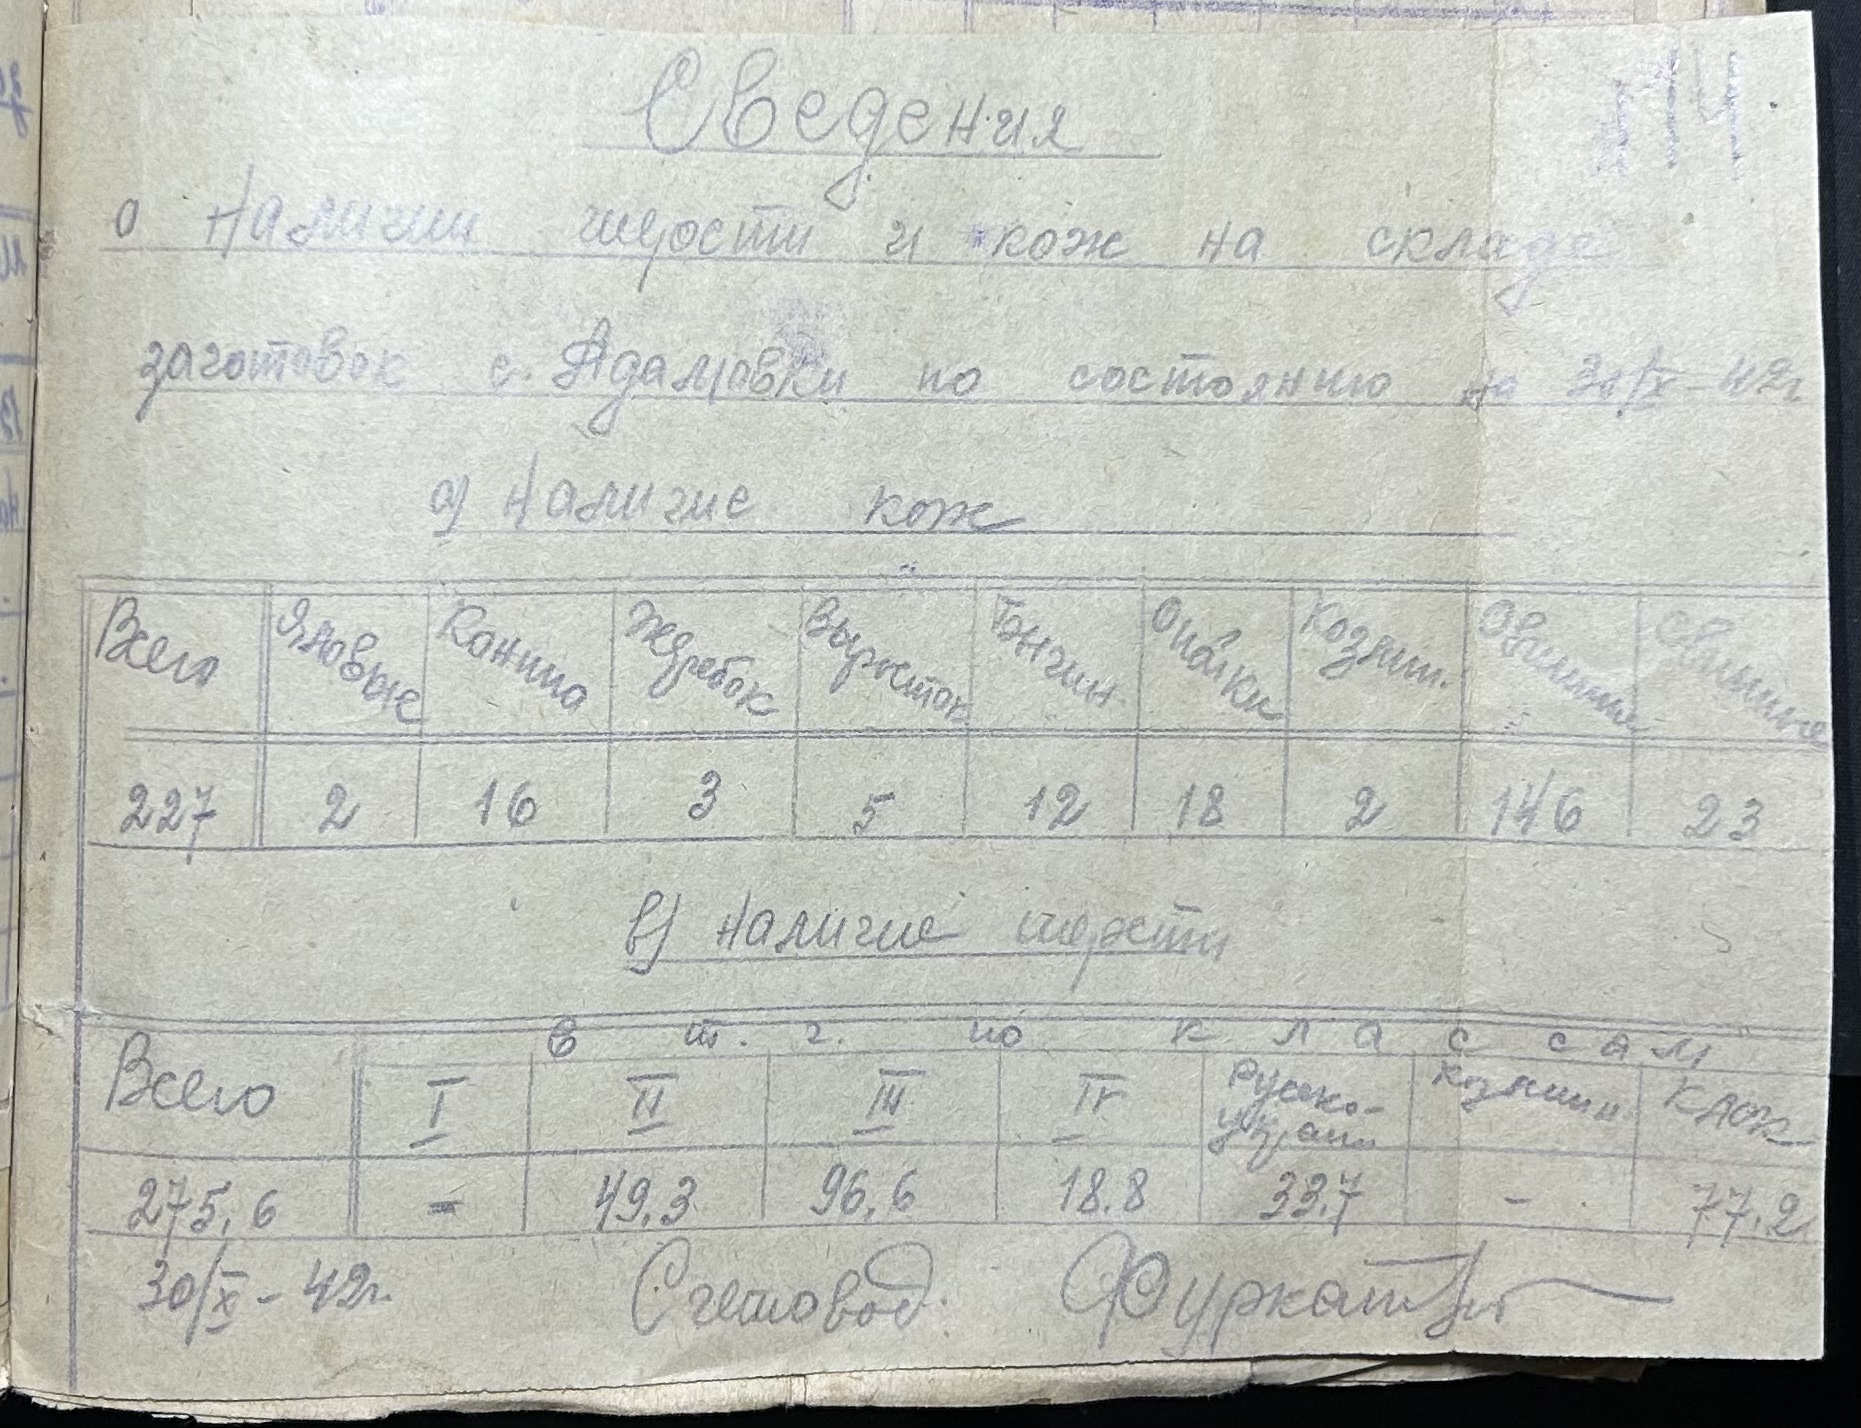 Сведения
о наличии шерости и кож на складе
заготовок с. Адамовки по состоянию на 30/X-42г
а) Наличие кож
Всего Яловые Конина Жеребок Выросток Опойки Козлин. Овчины Свиные
227 2 16 3 5 12 18 2 146 23
в) наличие шерсти
Всего в т. ч. по классам
I II III IV Русско- Козлин Клок
украин
275,6 - 49,3 96,6 18.8 33.7 - 77.2
30/X-42г. Счетовод. Фуркат